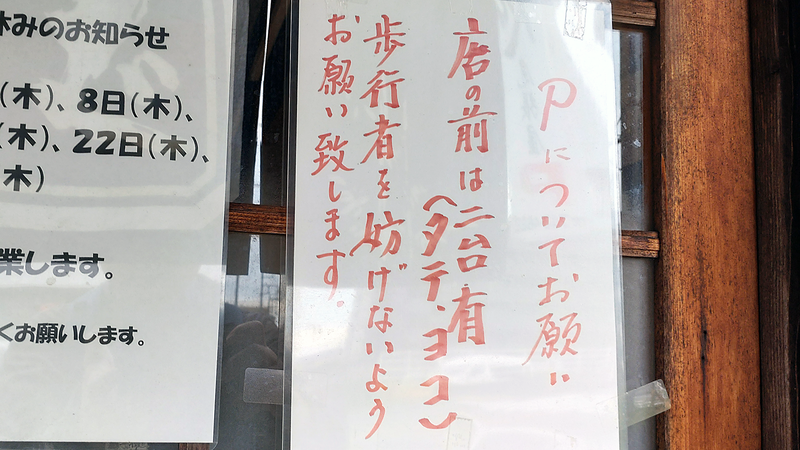 休みのお知らせ
(木)、8日(木)、
(木)、22日(木)、
木)
業します。
くお願いします。
Pについてお願い
店の前は二台有
(タテ、ヨコ)
歩行者を妨げないよう
お願い致します。